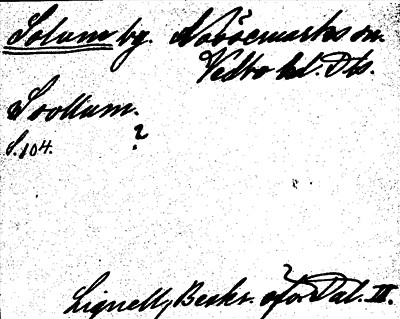 Solum by. Nössemarks sn.
Vedbo hd. Dls.
Soollum.
S. 104. ?
Lignell, Beskr. öfv. Dal. III.